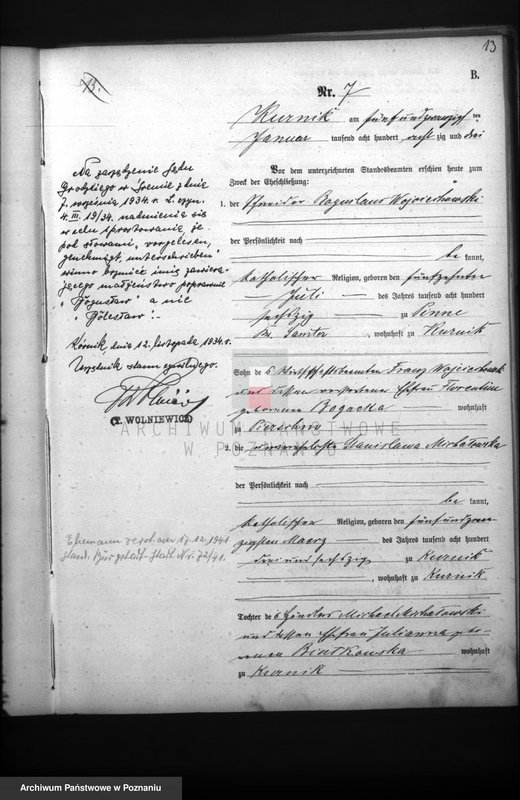 13
13.
B.
Nr. 7
Kurnik am fünfundzwanzig ten
Januar tausend acht hundert acht zig und drei
Vor dem unterzeichneten Standesbeamten erschien heute zum
Zweck der Eheschließung:
1. der Schneider Boguslaus Wojciechowski
der Persönlichkeit nach
be kannt,
katholischer Religion, geboren den fünfzehnten
Juli des Jahres tausend acht hundert
sechszig zu Pinne
Kr. Samter, wohnhaft zu Kurnik
Sohn des Wirthschaftsbeamten Franz Wojciechowski
und dessen verstorbenen Ehefrau Florentine
geborenen Bogacka wohnhaft
zu
2. die unverehelichte Stanislawa Michalowska
der Persönlichkeit nach
be kannt,
katholischer Religion, geboren den fünfundzwan
zigsten Maerz des Jahres tausend acht hundert
drei und sechszig zu Kurnik
, wohnhaft zu Kurnik
Tochter des Händlers Michael Michalowski
und dessen Ehefrau Julianna gebo-
renen Biatkowska wohnhaft
zu Kurnik
Na zarządzenie Sądu
Grodzkiego w Śremie z dnia
7. września 1934. r. L. czyn.
4. III. 19/34. nadmienia się
w celu sprostowania, że
pod słowami, vorgelesen,
genehmigt, unterschrieben
winno brzmieć imię zawiera-
jącego małżeństwo poprawnie
"Bogusław" a nie
"Bolesław".-
Kórnik, dnia 12. listopada 1934. r.
Urzędnik stanu cywilnego.
(T. WOLNIEWICZ)
Ehemann verst. am 17.12.1941
Stand. Burgstadt-Stadt Nr. 72/41.
ARCHIWUM PAŃSTWOWE
W POZNANIU
Archiwum Państwowe w Poznaniu